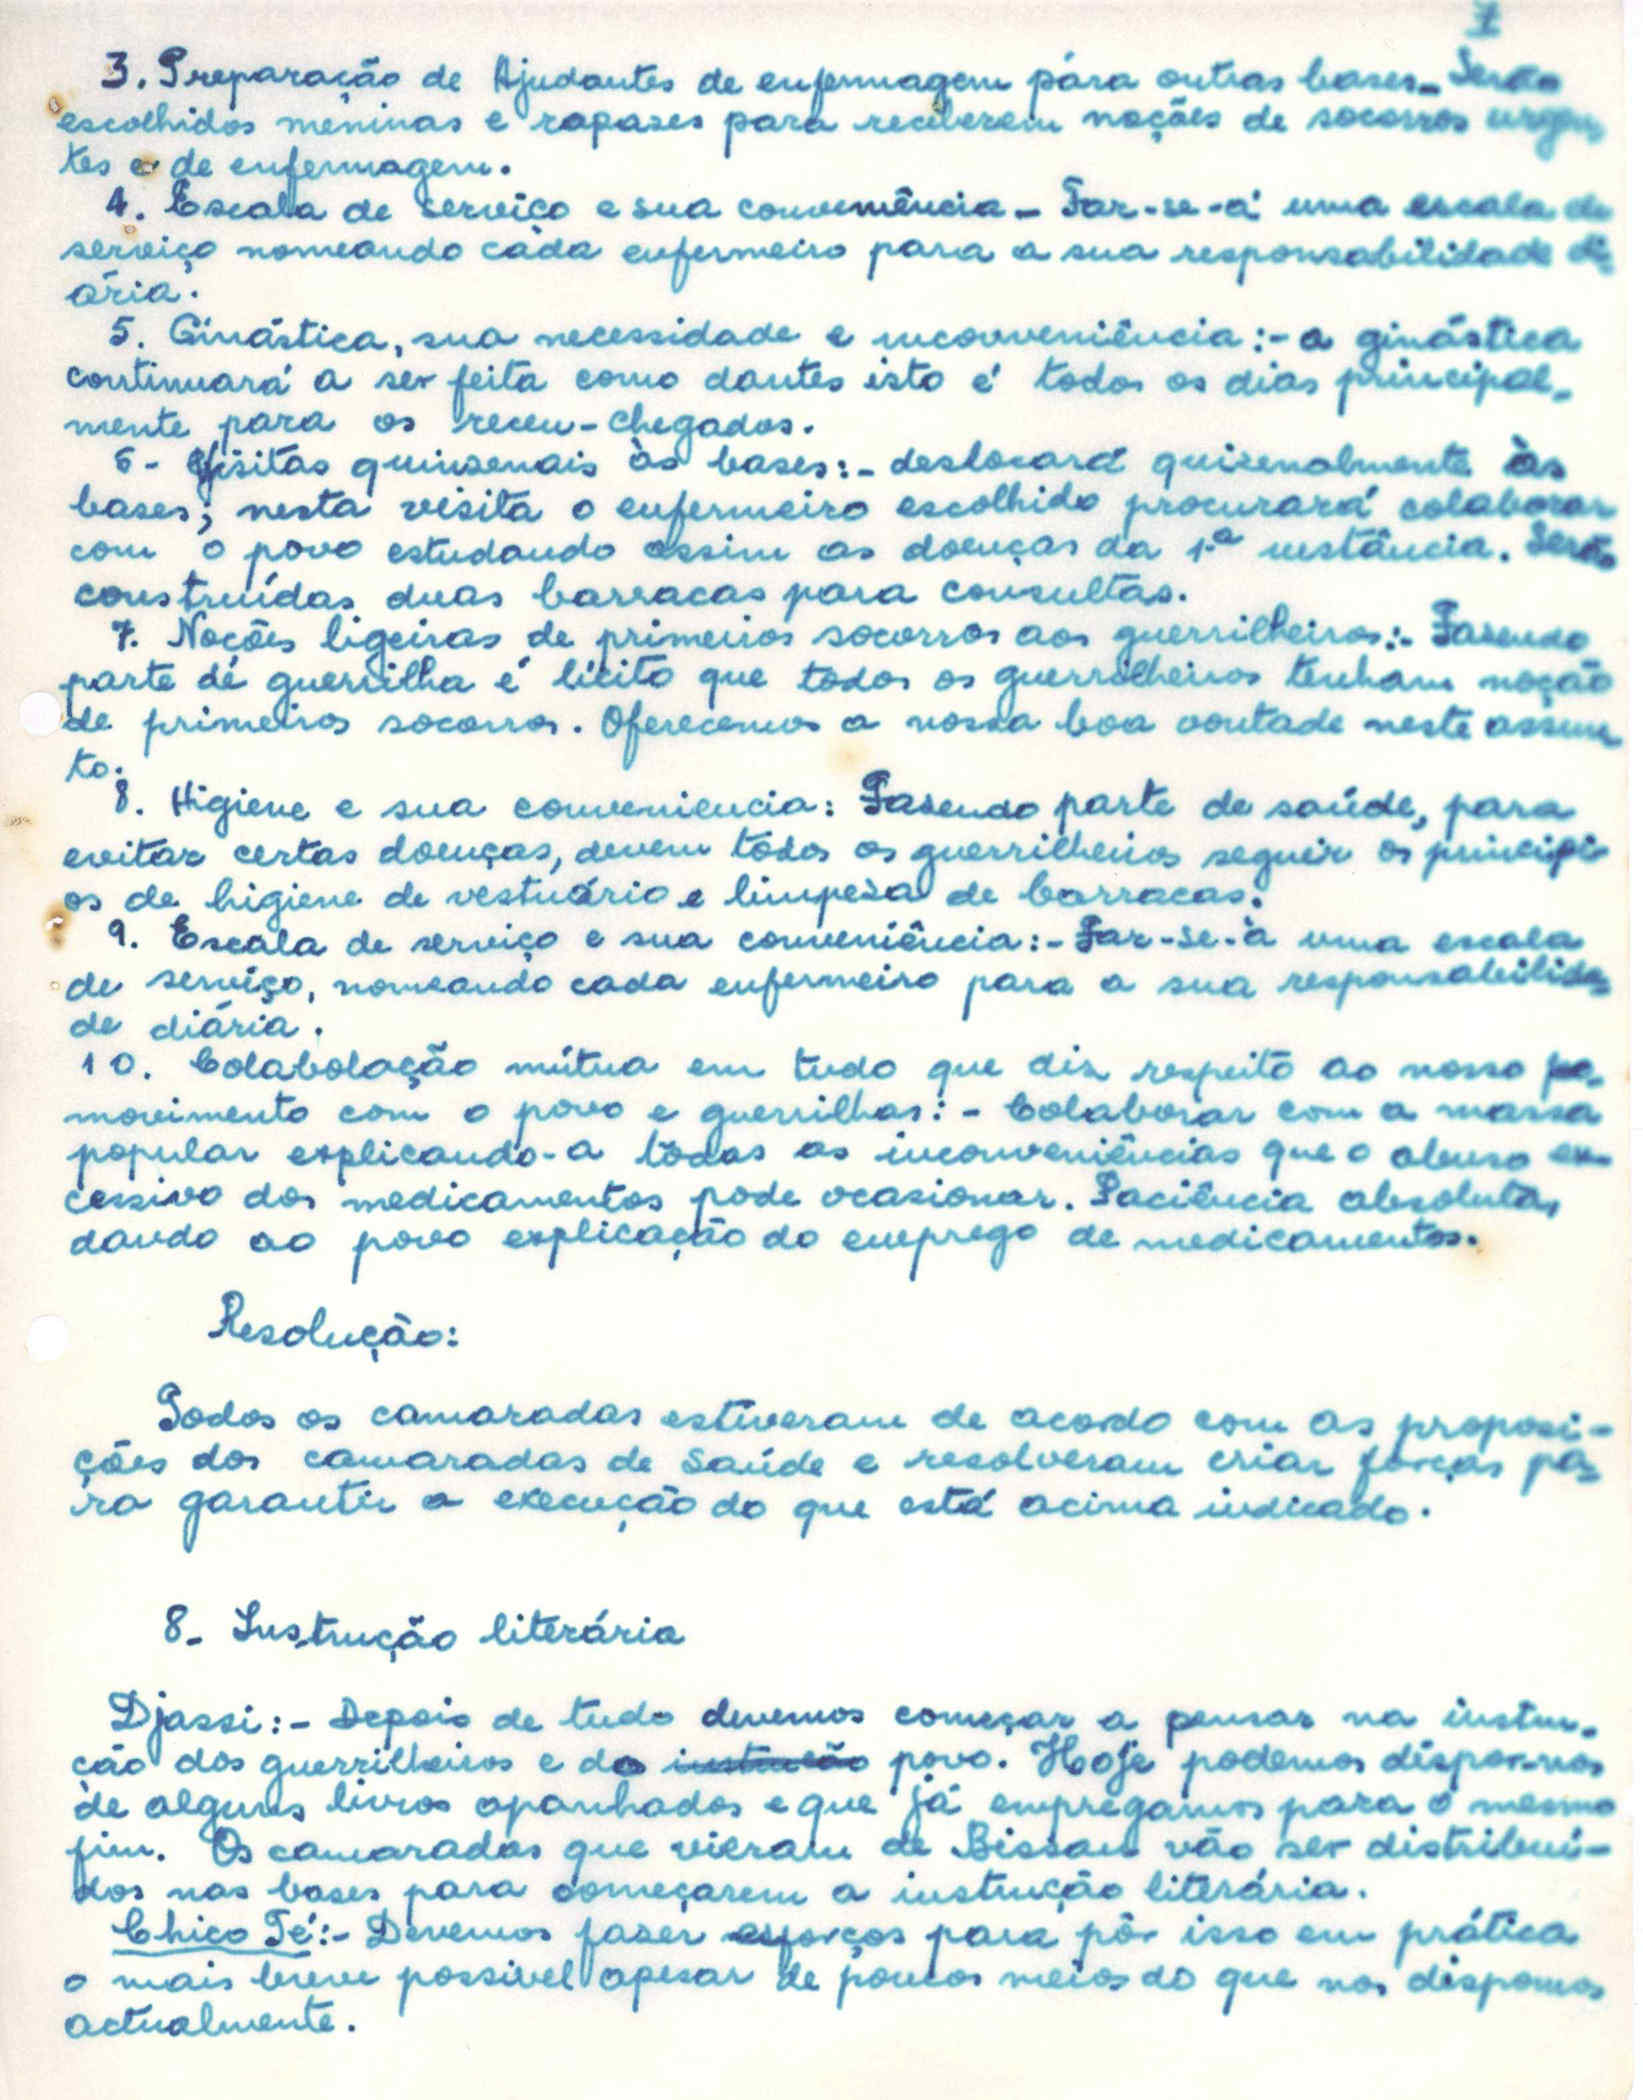 7
3. Preparação de Ajudantes de enfermagem pára outras bases - Serão
escolhidos meninas e rapases para receberem noções de socorros urgen
tes e de enfermagem.
4. Escala de serviço e sua conveniência - Far-se-á uma escala de
serviço nomeando cada enfermeiro para a sua responsabilidade di-
ária.
5. Ginástica, sua necessidade e inconveniência :- a ginástica
continuará a ser feita como dantes isto é todos os dias principal-
mente para os recem-chegados.
6- Visitas quinzenais às bases :- deslocará quizenalmente às
bases; nesta visita o enfermeiro escolhido procurará colaborar
com o povo estudando assim as doenças da 1ª instância. Serão
construídas duas barracas para consultas.
7. Noções ligeiras de primeiros socorros aos guerrilheiros :- Fazendo
parte de guerrilha é lícito que todos os guerrilheiros tenham noção
de primeiros socorros. Oferecemos a nossa boa vontade neste assun
to.
8. Higiene e sua conveniencia : Fazendo parte de saúde, para
evitar certas doenças, devem todos os guerrilheiros seguir os principi
os de higiene de vestuário e limpesa de barracas.
9. Escala de serviço e sua conveniência :- Far-se-à uma escala
de serviço, nomeando cada enfermeiro para a sua responsabilida-
de diária.
10. Colabolação mútua em tudo que diz respeito ao nosso
movimento com o povo e guerrilhas : - Colaborar com a massa
popular explicando-a todas as inconveniências que o abuso ex-
cessivo dos medicamentos pode ocasionar. Paciência absoluta,
dando ao povo explicação do emprego de medicamentos.
Resolução:
Todos os camaradas estiveram de acordo com as proposi-
ções dos camaradas de saúde e resolveram criar forças pa-
ra garantir a execução do que está acima indicado.
8- Instrução literária
Djassi :- Depois de tudo devemos começar a pensar na instru-
ção dos guerrilheiros e do instrução povo. Hoje podemos dispor-nos
de alguns livros apanhados e que já empregamos para o mesmo
fim. Os camaradas que vieram de Bissau vão ser distribuí-
dos nas bases para começarem a instrução literária.
Chico Té :- Devemos faser esforços para pôr isso em prática
o mais breve possivel apesar de poucos meios do que nos dispomos
actualmente.